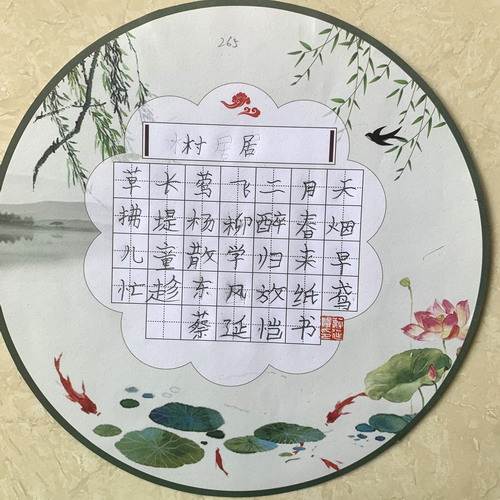 265
村居
草长莺飞二月天
拂堤杨柳醉春烟
儿童散学归来早
忙趁东风放纸鸢
蔡延恺书